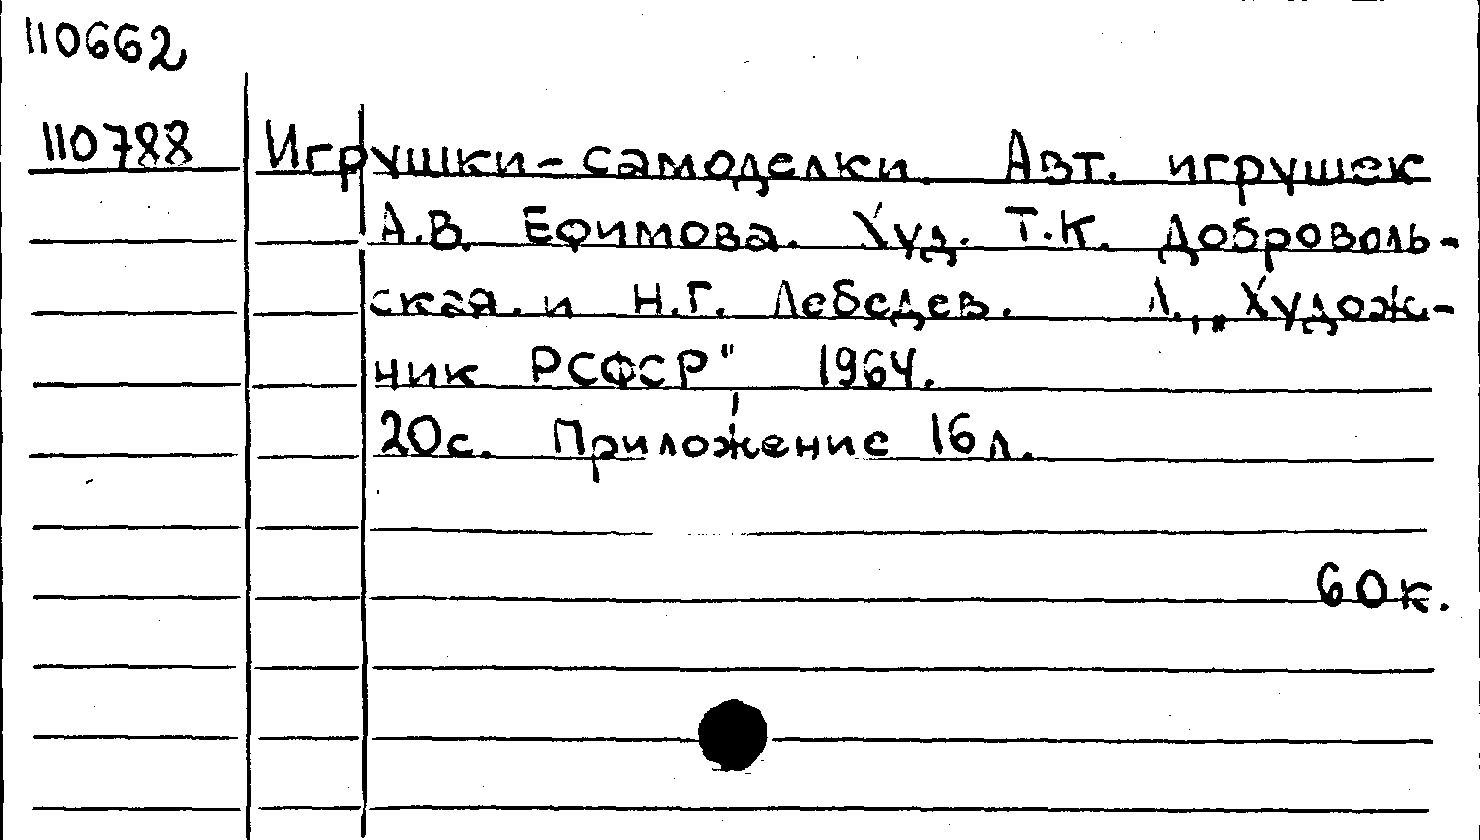 110662
110788 Игрушки-самоделки. Авт. игрушек
А.В. Ефимова. Худ. Т.К. Доброволь-
ская и Н.Г. Лебедев. Л., „Худож-
ник РСФСР" 1964.
20с. Приложение 16л.
60к.